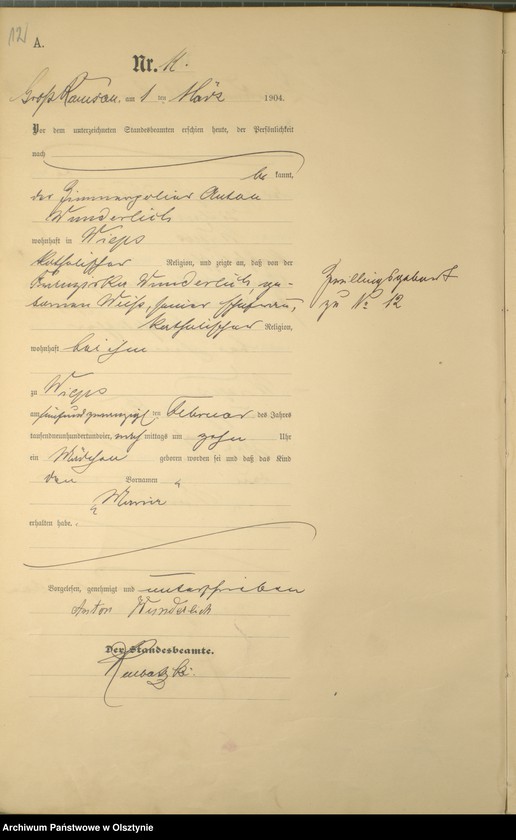 12
A.
Nr. 11.
Groß Ramsau, am 1 ten März 1904.
Vor dem unterzeichneten Standesbeamten erschien heute, der Persönlichkeit
nach
be kannt,
der Zimmerpolier Anton
Wunderlich
wohnhaft in Wieps
katholischer Religion, und zeigte an, daß von der
Wunderlich, ge-
borenen Weiß, seiner Ehefrau,
katholischer Religion,
wohnhaft bei ihm
zu Wieps
am fünfundzwanzigsten Februar des Jahres
tausendneunhundertundvier, nachmittags um zehn Uhr
ein Mädchen geboren worden sei und daß das Kind
den Vornamen
Maria
erhalten habe.
Vorgelesen, genehmigt und unterschrieben
Anton Wunderlich
Der Standesbeamte.
Zwillingsgeburt
zu No 12
Archiwum Państwowe w Olsztynie